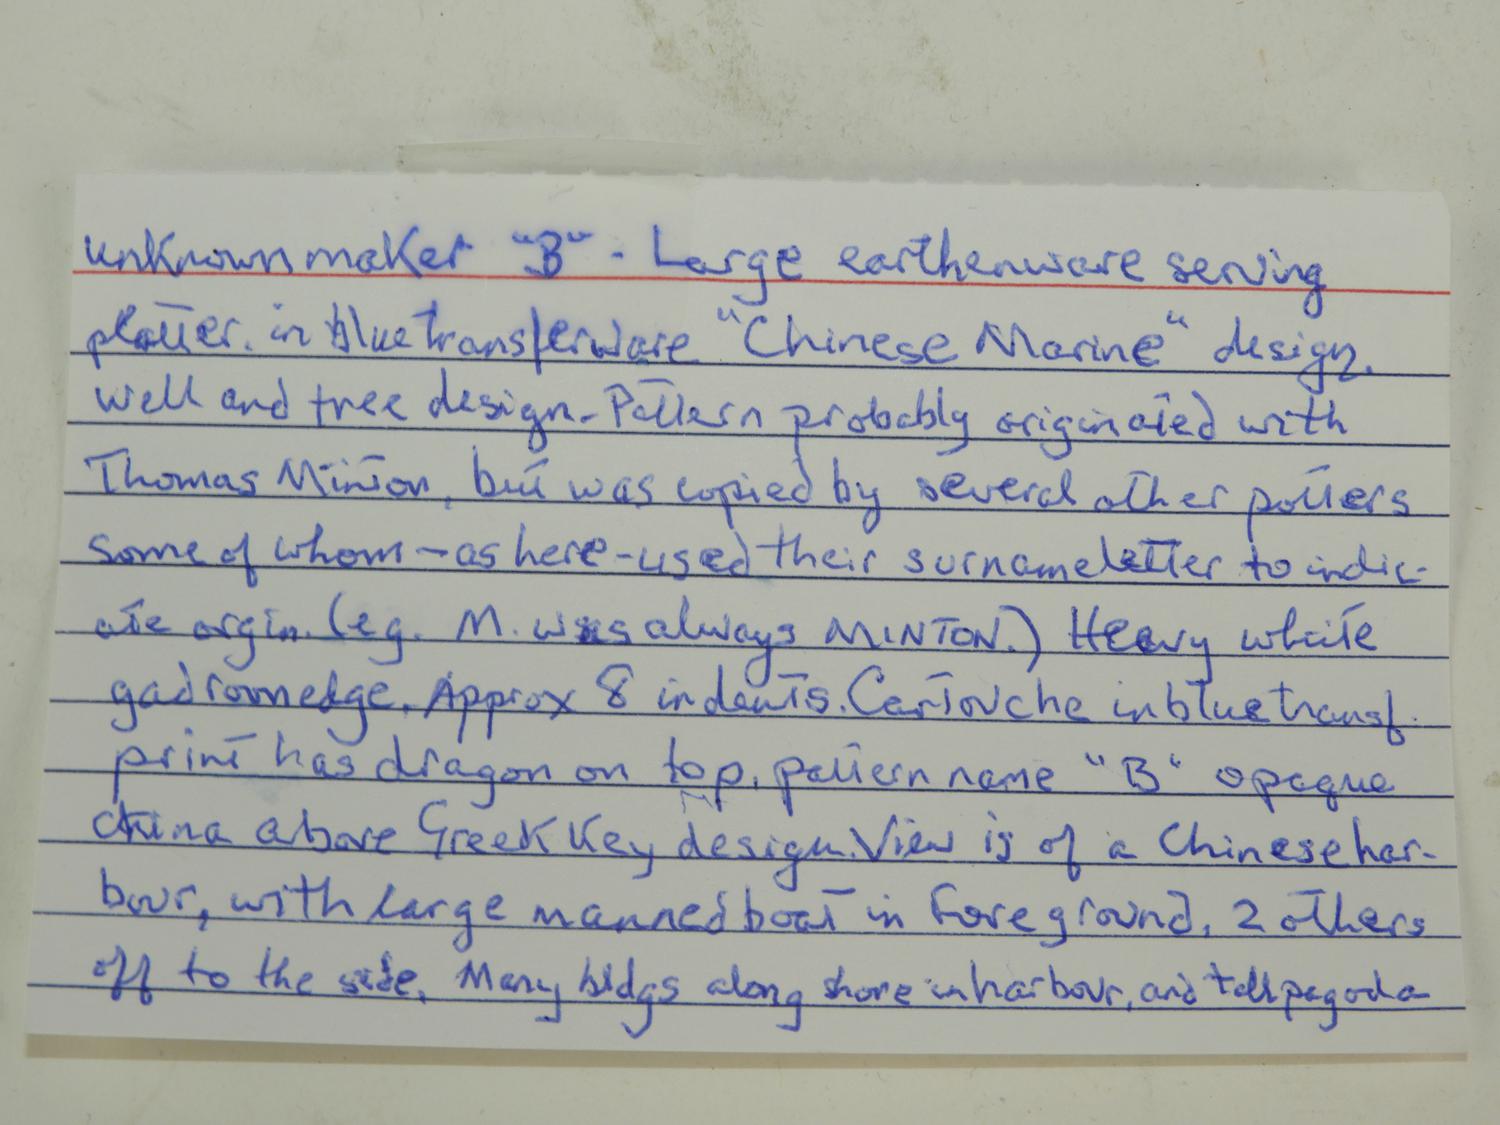 unknown maker "B" - Large earthenware serving
platter. in blue transferware "Chinese Marine" design,
well and tree design - Pattern probably originated with
Thomas Minton, but was copied by several other potters
some of whom - as here - used their surname letter to indic-
ate orgin. (eg. M. was always MINTON.) Heavy white
gadroon edge. Approx 8 indents. Cartouche in blue transf.
print has dragon on top, pattern name "B" opaque
china above Greek Key design. View is of a Chinese har-
bour, with large manned boat in foreground, 2 others
off to the side. Many bldgs along shore in harbour, and tall pagoda